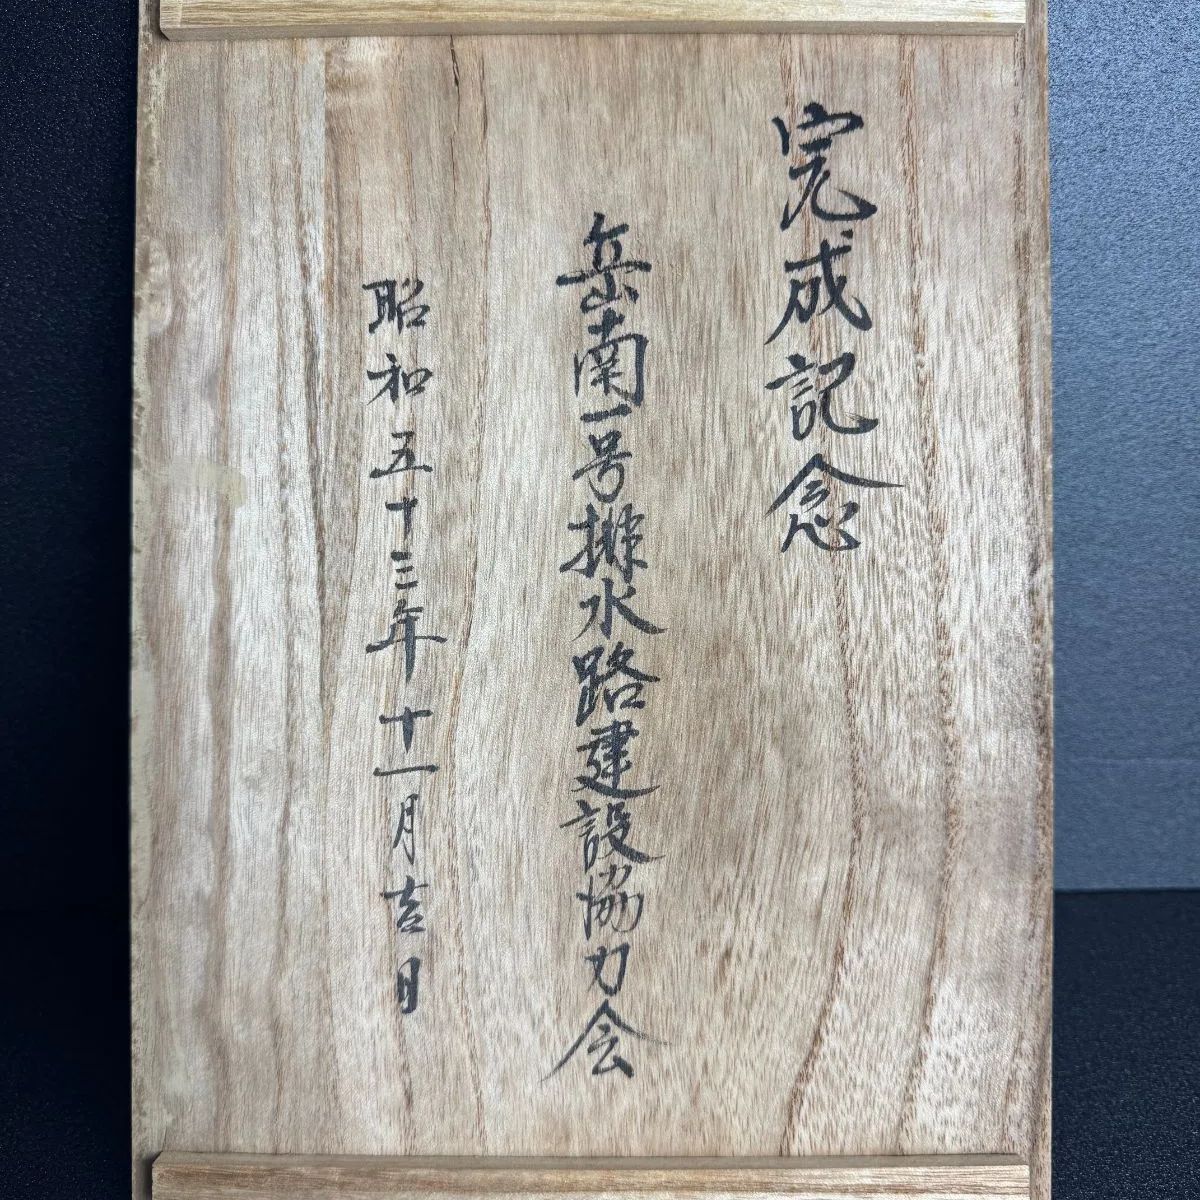 完成記念
岳南一号排水路建設協力会
昭和五十三年十一月吉日